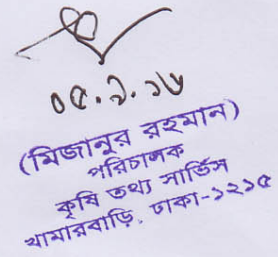 ০৫.৯.১৬
(মিজানুর রহমান)
পরিচালক
কৃষি তথ্য সার্ভিস
খামারবাড়ি, ঢাকা-১২১৫